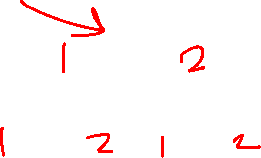 1 2
1 2 1 2